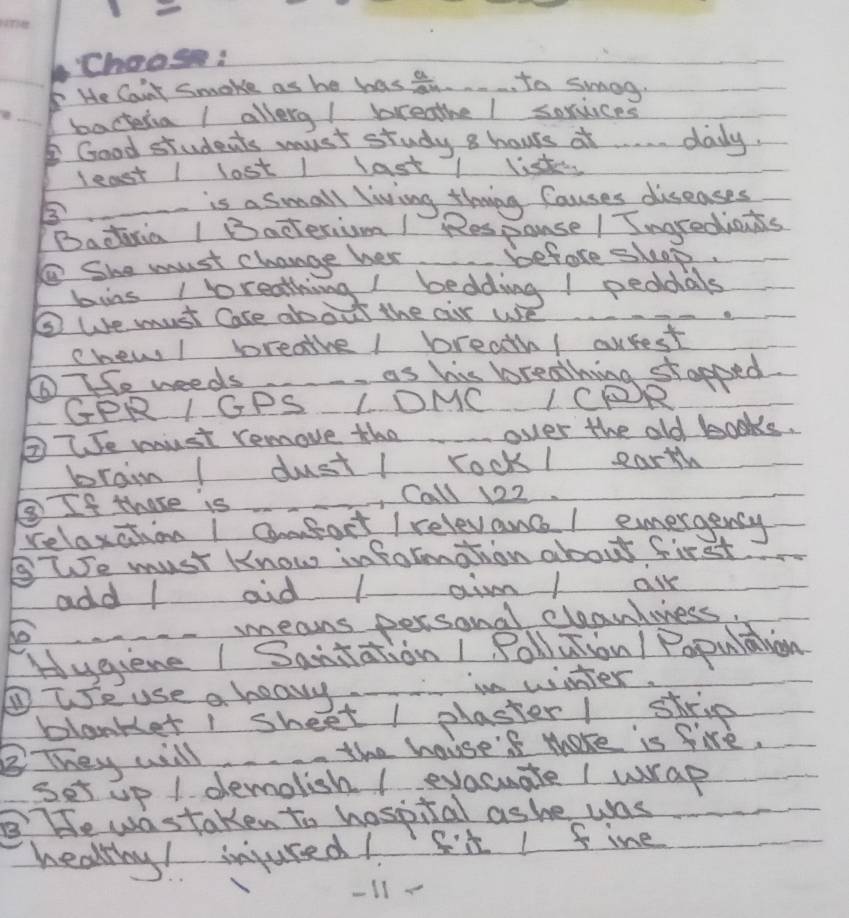 Choose:
1 He Can't Smoke as he has a/an ...... to smog.
bacteria / allerg / breathe / services
2 Good students must study 8 hours at ..... daily.
least / lost / last / list
3 ........ is a small living thing Causes diseases
Bacteria / Bacterium / Response / Ingredients
4 She must change her ...... before sleep.
bins / breathing / bedding / peddals
5 We must Care about the air we ........ .
chew / breathe / breath / arrest
6 He needs ........ as his breathing stopped
GPR / GPS / DMC / CPR
7 We must remove the ..... over the old books.
brain / dust / rock / earth
8 If there is ........, Call 122.
relaxation / Comfort / relevance / emergency
9 We must Know information about first .....
add / aid / aim / air
10 ........ means personal cleanliness.
Hygiene / Sanitation / Pollution / Population
11 We use a heavy ...... in winter.
blanket / sheet / plaster / strip
12 They will ....... the house if there is fire.
Set up / demolish / evacuate / wrap
13 He was taken to hospital as he was ........
healthy / injured / fit / fine
-11-